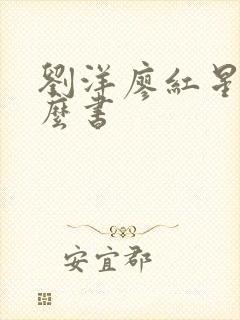 劉洋廖紅星
麼書
安宜郡